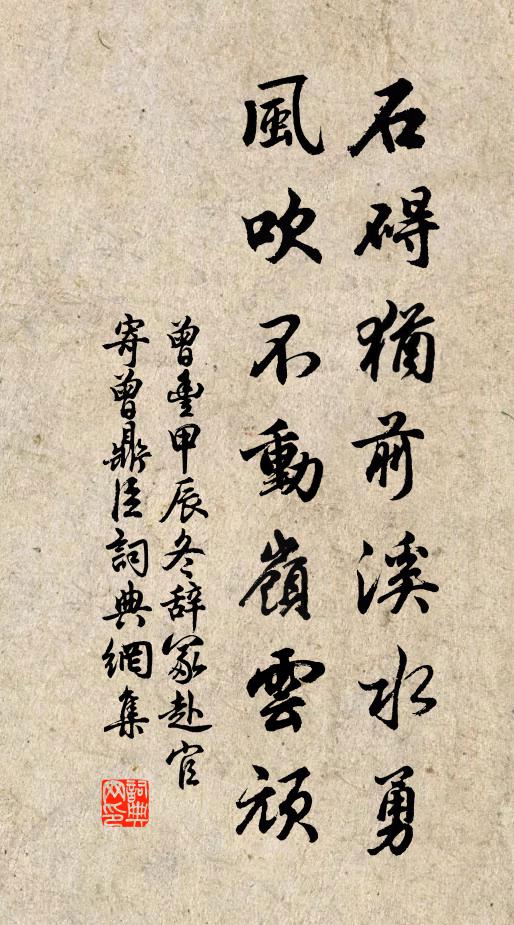 石碍猶前溪水勇
風吹不動嶺雲頑
曾豊甲辰冬辞冢赴官
寄曾鼎臣詞典網集
詞典网印